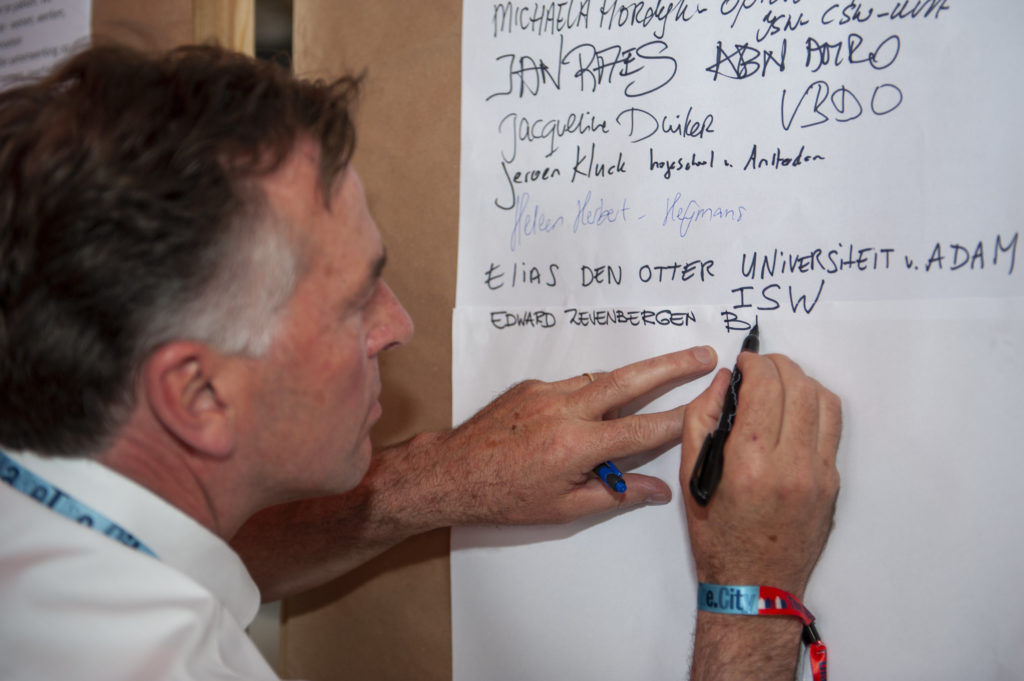 MICHAELA
JSW CSW-UVA
JAN RAES ABN AMRO
Jacqueline Duiker VBDO
Jeroen Kluck hogeschool v. Amsterdam
Heleen Herbert - Heijmans
ELIAS DEN OTTER UNIVERSITEIT v. ADAM
ISW
EDWARD ZEVENBERGEN B
e.City